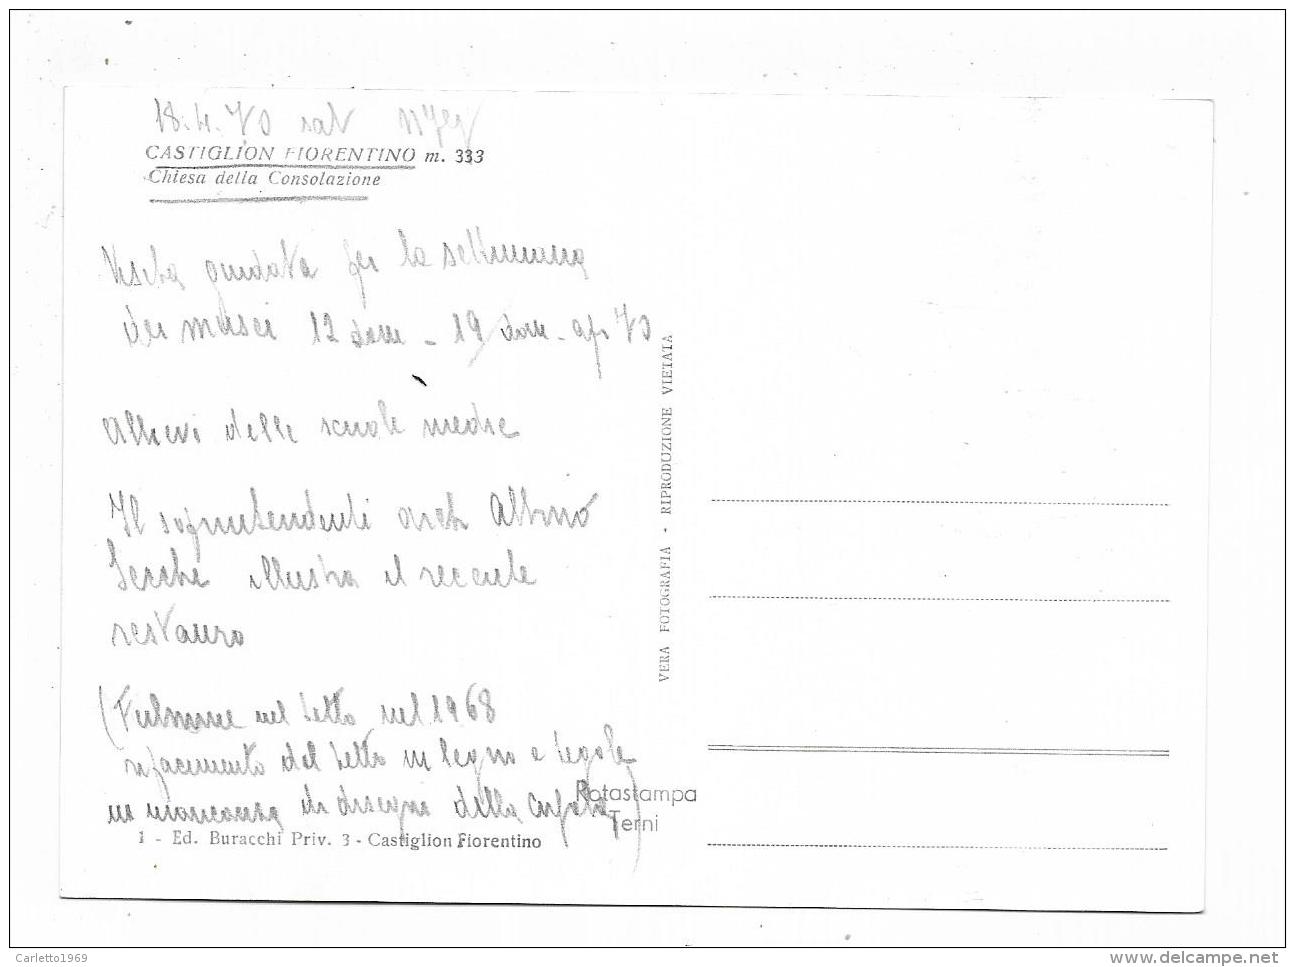 18.4.70 sab
CASTIGLION FIORENTINO m. 333
Chiesa della Consolazione
Visita guidata per la settimana
dei musei 12 dom - 19 dom - apr 70
Allievi delle scuole medie
Il soprintendente arch Albino
Secchi illustra il recente
restauro
(Fulmine nel tetto nel 1968
rifacimento del tetto in legno e tegole
in mancanza di disegni della cupola)
1 - Ed. Buracchi Priv. 3 - Castiglion Fiorentino
VERA FOTOGRAFIA - RIPRODUZIONE VIETATA
Rotastampa
Terni
Carletto1969
delcampe.net